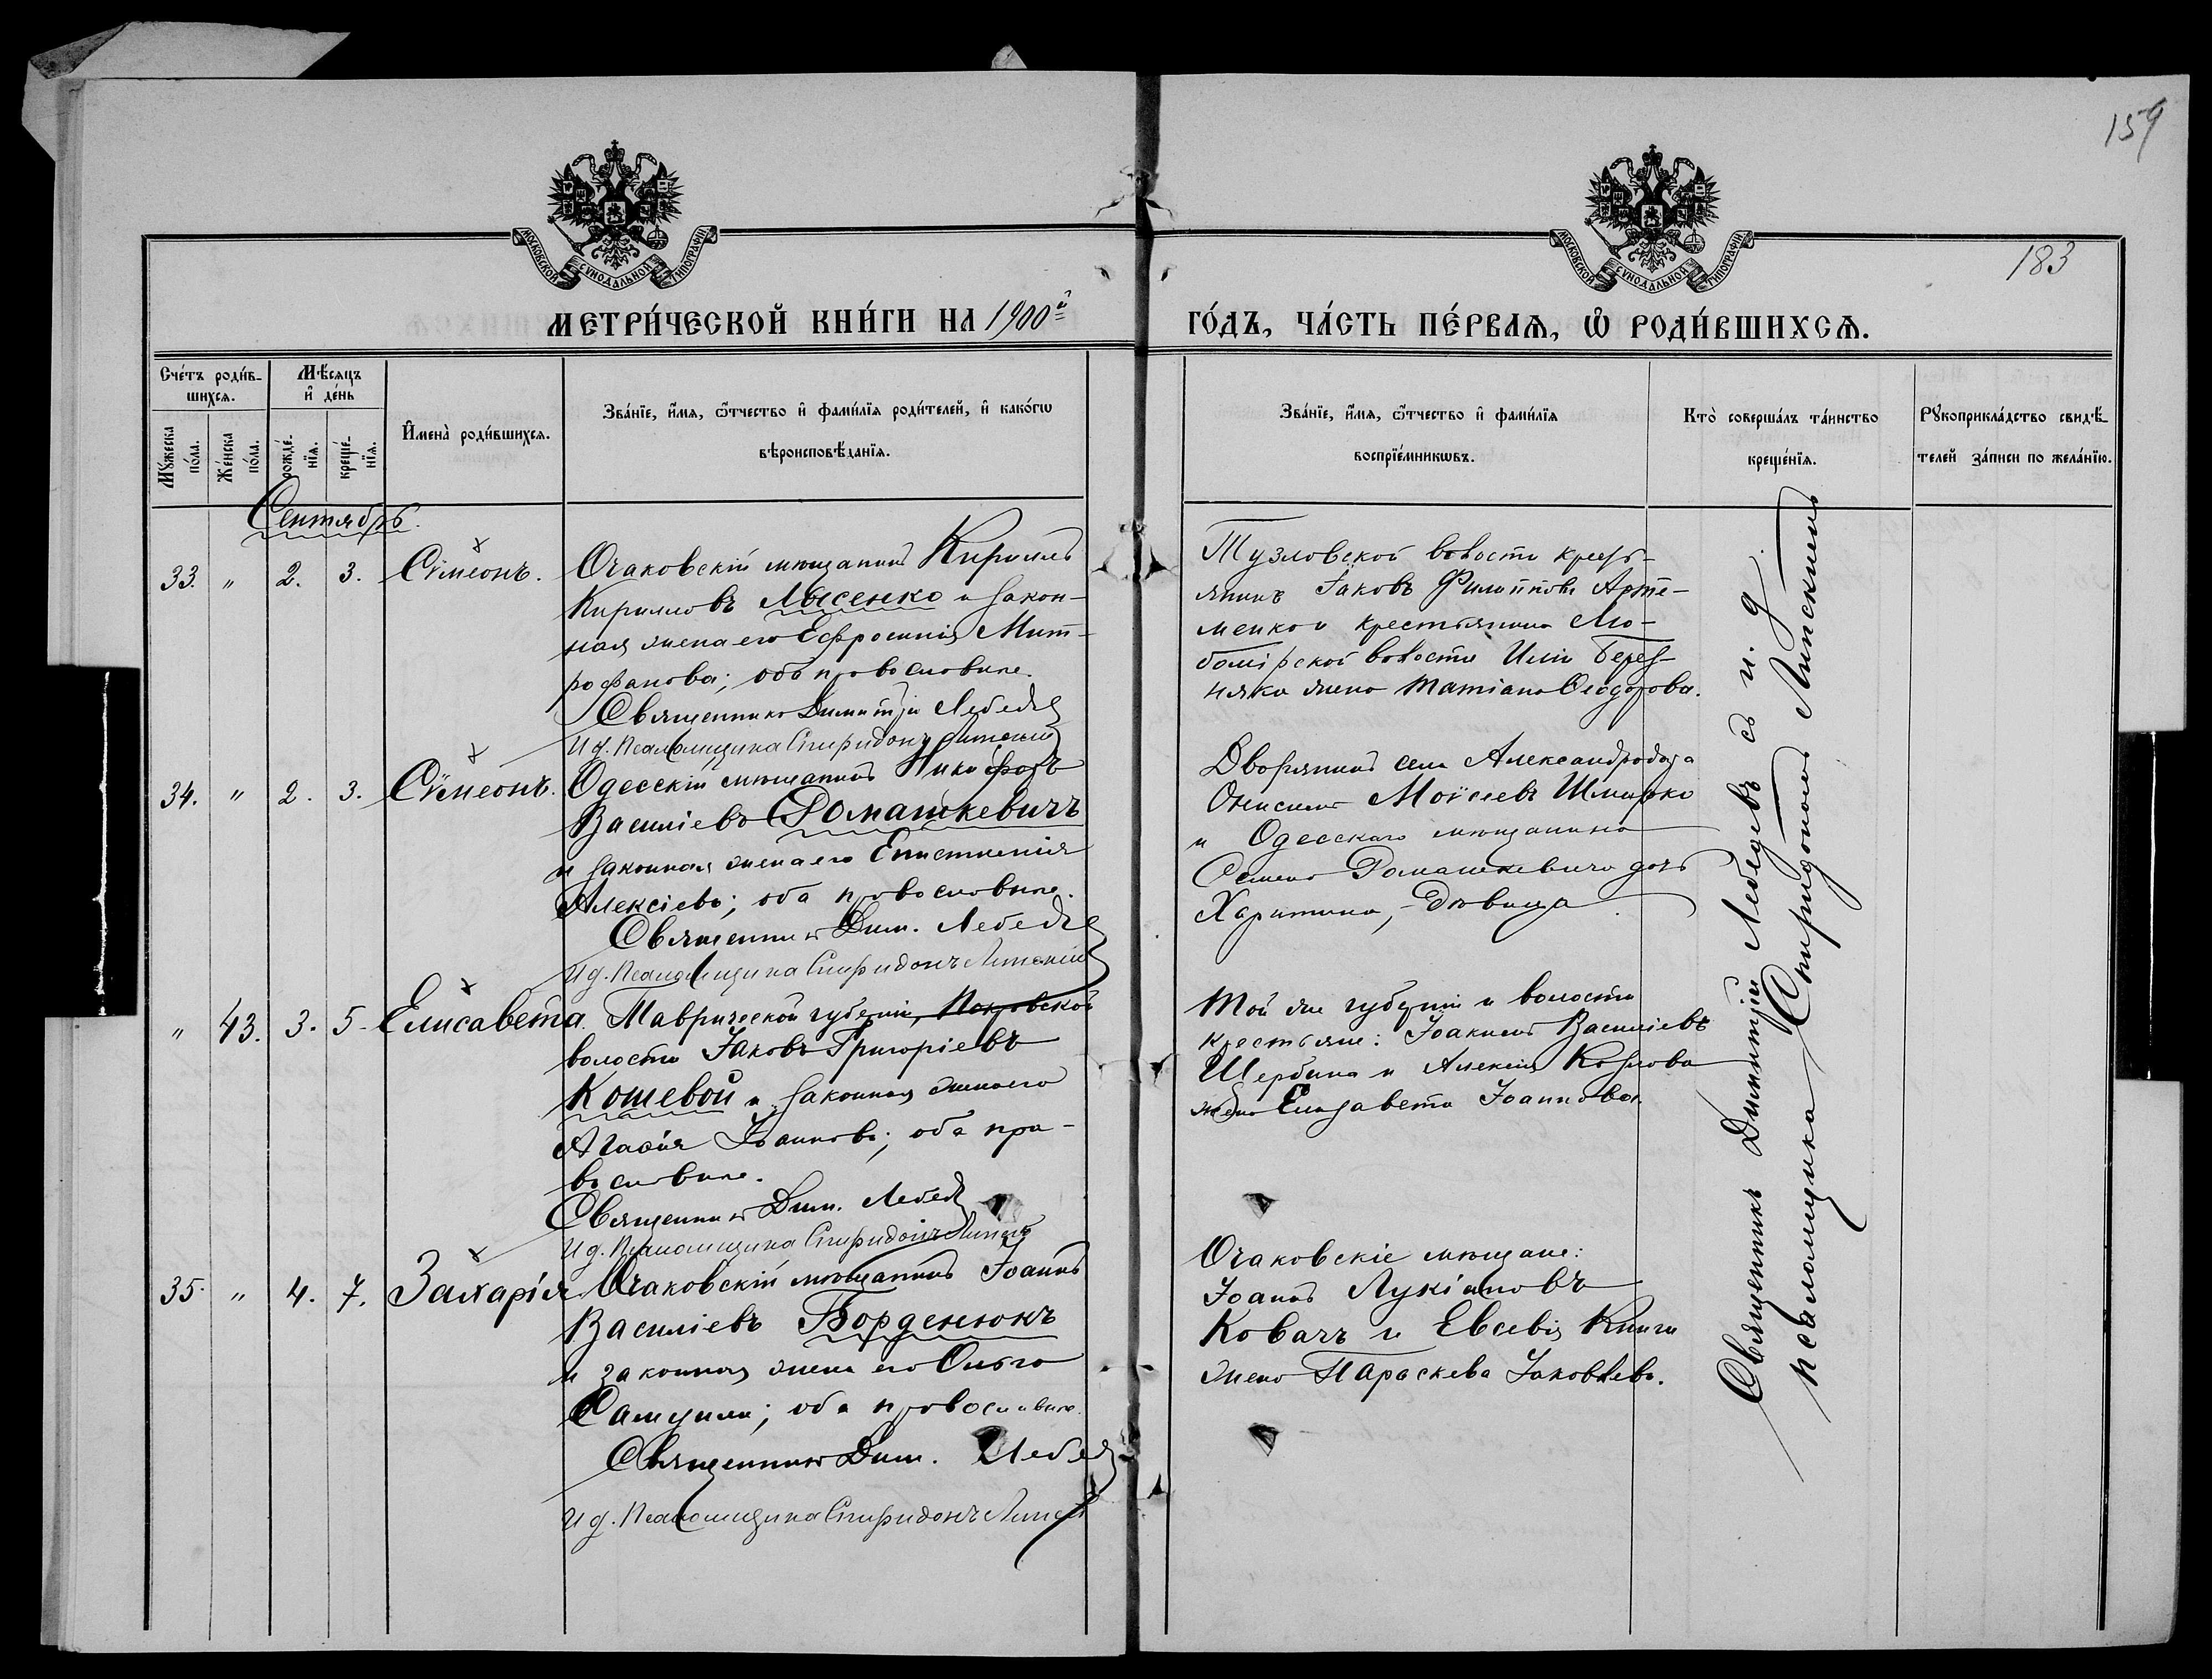 159
183
МОСКОВСКОЙ СѴНОДАЛЬНОЙ ТИПОГРАФІИ
МОСКОВСКОЙ СѴНОДАЛЬНОЙ ТИПОГРАФІИ
МЕТРИ́ЧЕСКОЙ КНИ́ГИ НА 1900й
ГО́ДЪ, ЧА́СТЬ ПЕ́РВАѦ, Ѽ РОДИ́ВШИХСѦ.
Сче́тъ роди́в-
шихсѧ.
Мѣ́сяцъ
и҆ де́нь
Мꙋ́жеска
по́ла.
Же́нска
по́ла.
рожде́-
нїѧ.
креще́-
нїѧ.
И҆мена̀ роди́вшихсѧ.
Зва́нїе, и҆́мѧ, ѻ҆́тчество и҆ фами́лїѧ роди́телей, и҆ како́гѡ
вѣроисповѣ́данїѧ.
Зва́нїе, и҆́мѧ, ѻ҆́тчество и҆ фами́лїѧ
воспрїе́мникѡвъ.
Кто̀ соверша́лъ та́инство
креще́нїѧ.
Рꙋкоприкла́дство свидѣ́-
телей за́писи по жела́нїю.
Сентябрь.
33. " 2. 3. Сѵмеонъ.
Очаковскій мѣщанинъ Кириллъ
Кирилловъ Лысенко и закон-
ная жена его Евфросинія Мит-
рофанова; оба православные.
Священникъ Димитрій Лебедев
И д. Псаломщика Спиридонъ Липскій
Тузловской волости кресть-
янинъ Іаковъ Филипповъ Арте-
менко и крестьянина Лю-
бомірской волости Иліи Берез-
няка жена Татіана Ѳеодорова.
34. " 2. 3. Сѵмеонъ.
Одесскій мѣщанинъ Никифоръ
Василіевъ Ромашкевичъ
и законная жена его Епистимія
Алексіева; оба православные.
Священникъ Дим. Лебедев
И д. Псаломщика Спиридонъ Липскій
Дворянинъ села Александродара
Онисимъ Моѵсеевъ Шмирко
и Одесскаго мѣщанина
Семена Ромашкевича дочь
Харитина, - дѣвица
" 43. 3. 5. Елисавета.
Таврической губерніи, Покровской
волости Іаковъ Григоріевъ
Кошевой и законная жена его
Агаѳія Іоаннова; оба пра-
вославные.
Священникъ Дим. Лебедев
И д. Псаломщика Спиридонъ Липскій
Той же губерніи и волости
крестьяне: Іоакимъ Василіевъ
Щербина и Алексія Козлова
жена Елизавета Іоаннова
35. " 4. 7. Захарія.
Очаковскій мѣщанинъ Іоаннъ
Василіевъ Борденюкъ
и законная жена его Ольга
Самуилова; оба православные.
Священникъ Дим. Лебедев
И д. Псаломщика Спиридонъ Липскій
Очаковскіе мѣщане:
Іоаннъ Лукіановъ
Ковачъ и Евсевія Книги
жена Параскева Іаковлева.
Священникъ Димитрій Лебедевъ съ и. д.
псаломщика Спиридономъ Липскимъ